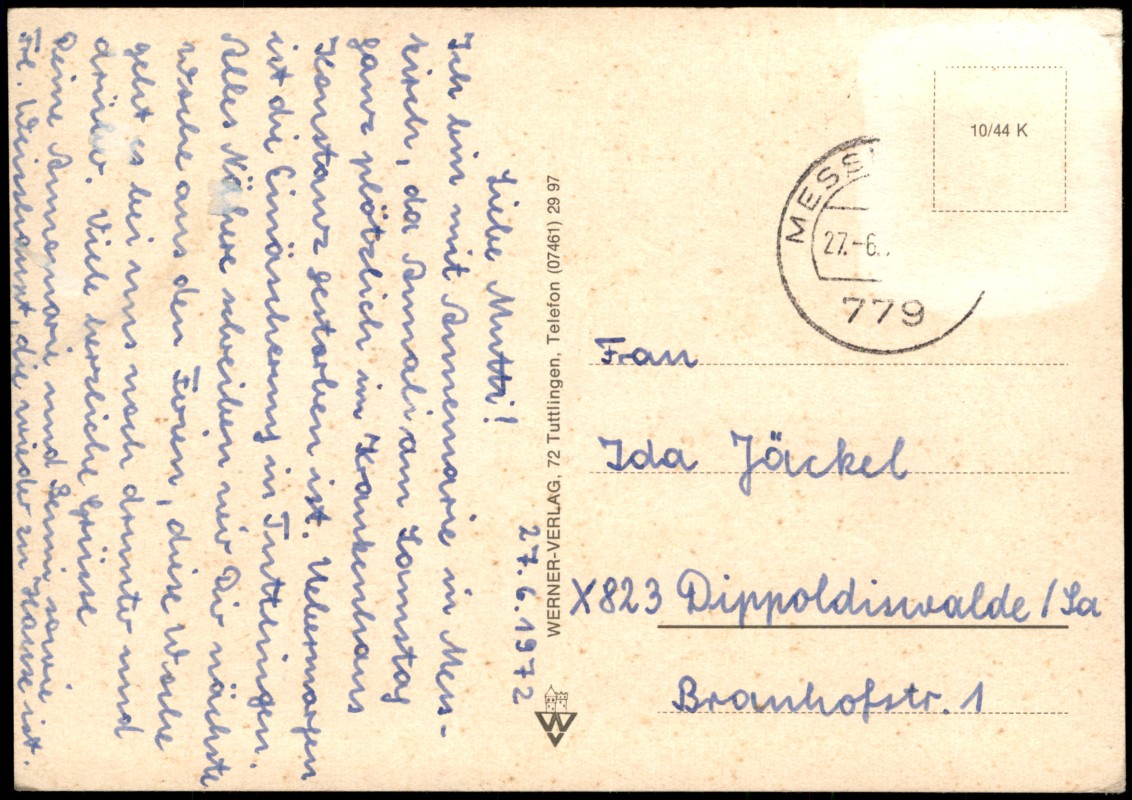 27.6.1972
Liebe Mutti!
Ich bin mit Annemarie in Mess-
kirch, da Annali am Samstag
ganz plötzlich im Krankenhaus
Konstanz gestorben ist. Uebermorgen
ist die Einäscherung in Tuttlingen.
Alles Nähere schreiben wir Dir nächste
Woche aus den Ferien, diese Woche
geht es bei uns noch drunter und
drüber. Viele herzliche Grüsse
Deine Annegmarie und Benni sowie
Frl. Weisshaupt, die wieder zu Hause ist.
WERNER-VERLAG, 72 Tuttlingen, Telefon (07461) 29 97
10/44 K
MESS
27.-6.
779
Frau
Ida Jäckel
X823 Dippoldiswalde / Sa
Brauhofstr. 1